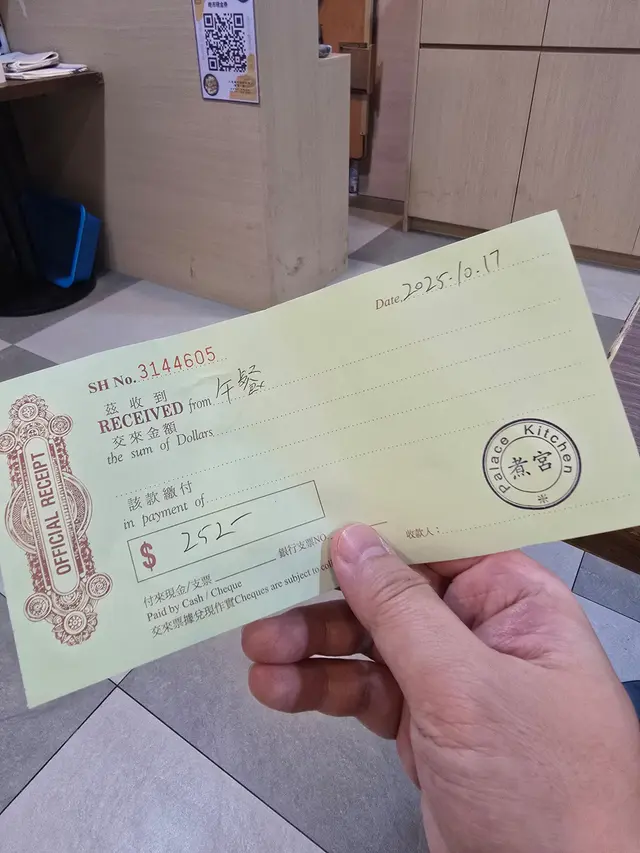 SH No. 3144605
Date 2025.10.17
茲收到
RECEIVED from 午餐
交來金額
the sum of Dollars
該款繳付
in payment of
$ 252-
付來現金/支票
Paid by Cash / Cheque
銀行支票NO.
交來票據兌現作實Cheques are subject to
收款人:
OFFICIAL RECEIPT
Palace Kitchen
煮宮